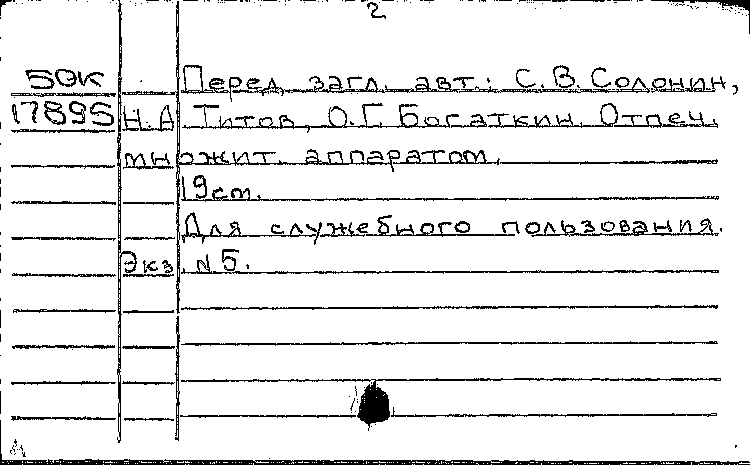 2
50К Перед загл. авт.: С.В.Солонин,
17895 Н.А.Титов, О.Г.Богаткин. Отпеч.
множит. аппаратом.
19см.
Для служебного пользования.
Экз. N5.